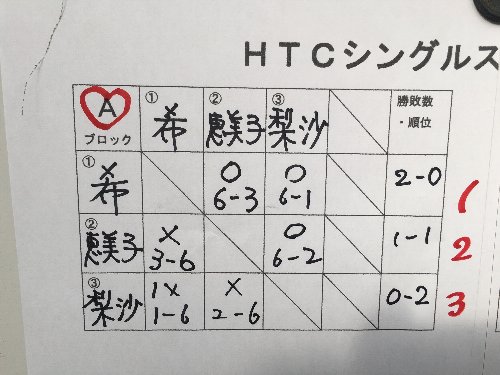 HTCシングルス
A ブロック ① 希 ② 恵美子 ③ 梨沙 勝敗数・順位
① 希 ○ 6-3 ○ 6-1 2-0 1
② 恵美子 × 3-6 ○ 6-2 1-1 2
③ 梨沙 1× 1-6 × 2-6 0-2 3